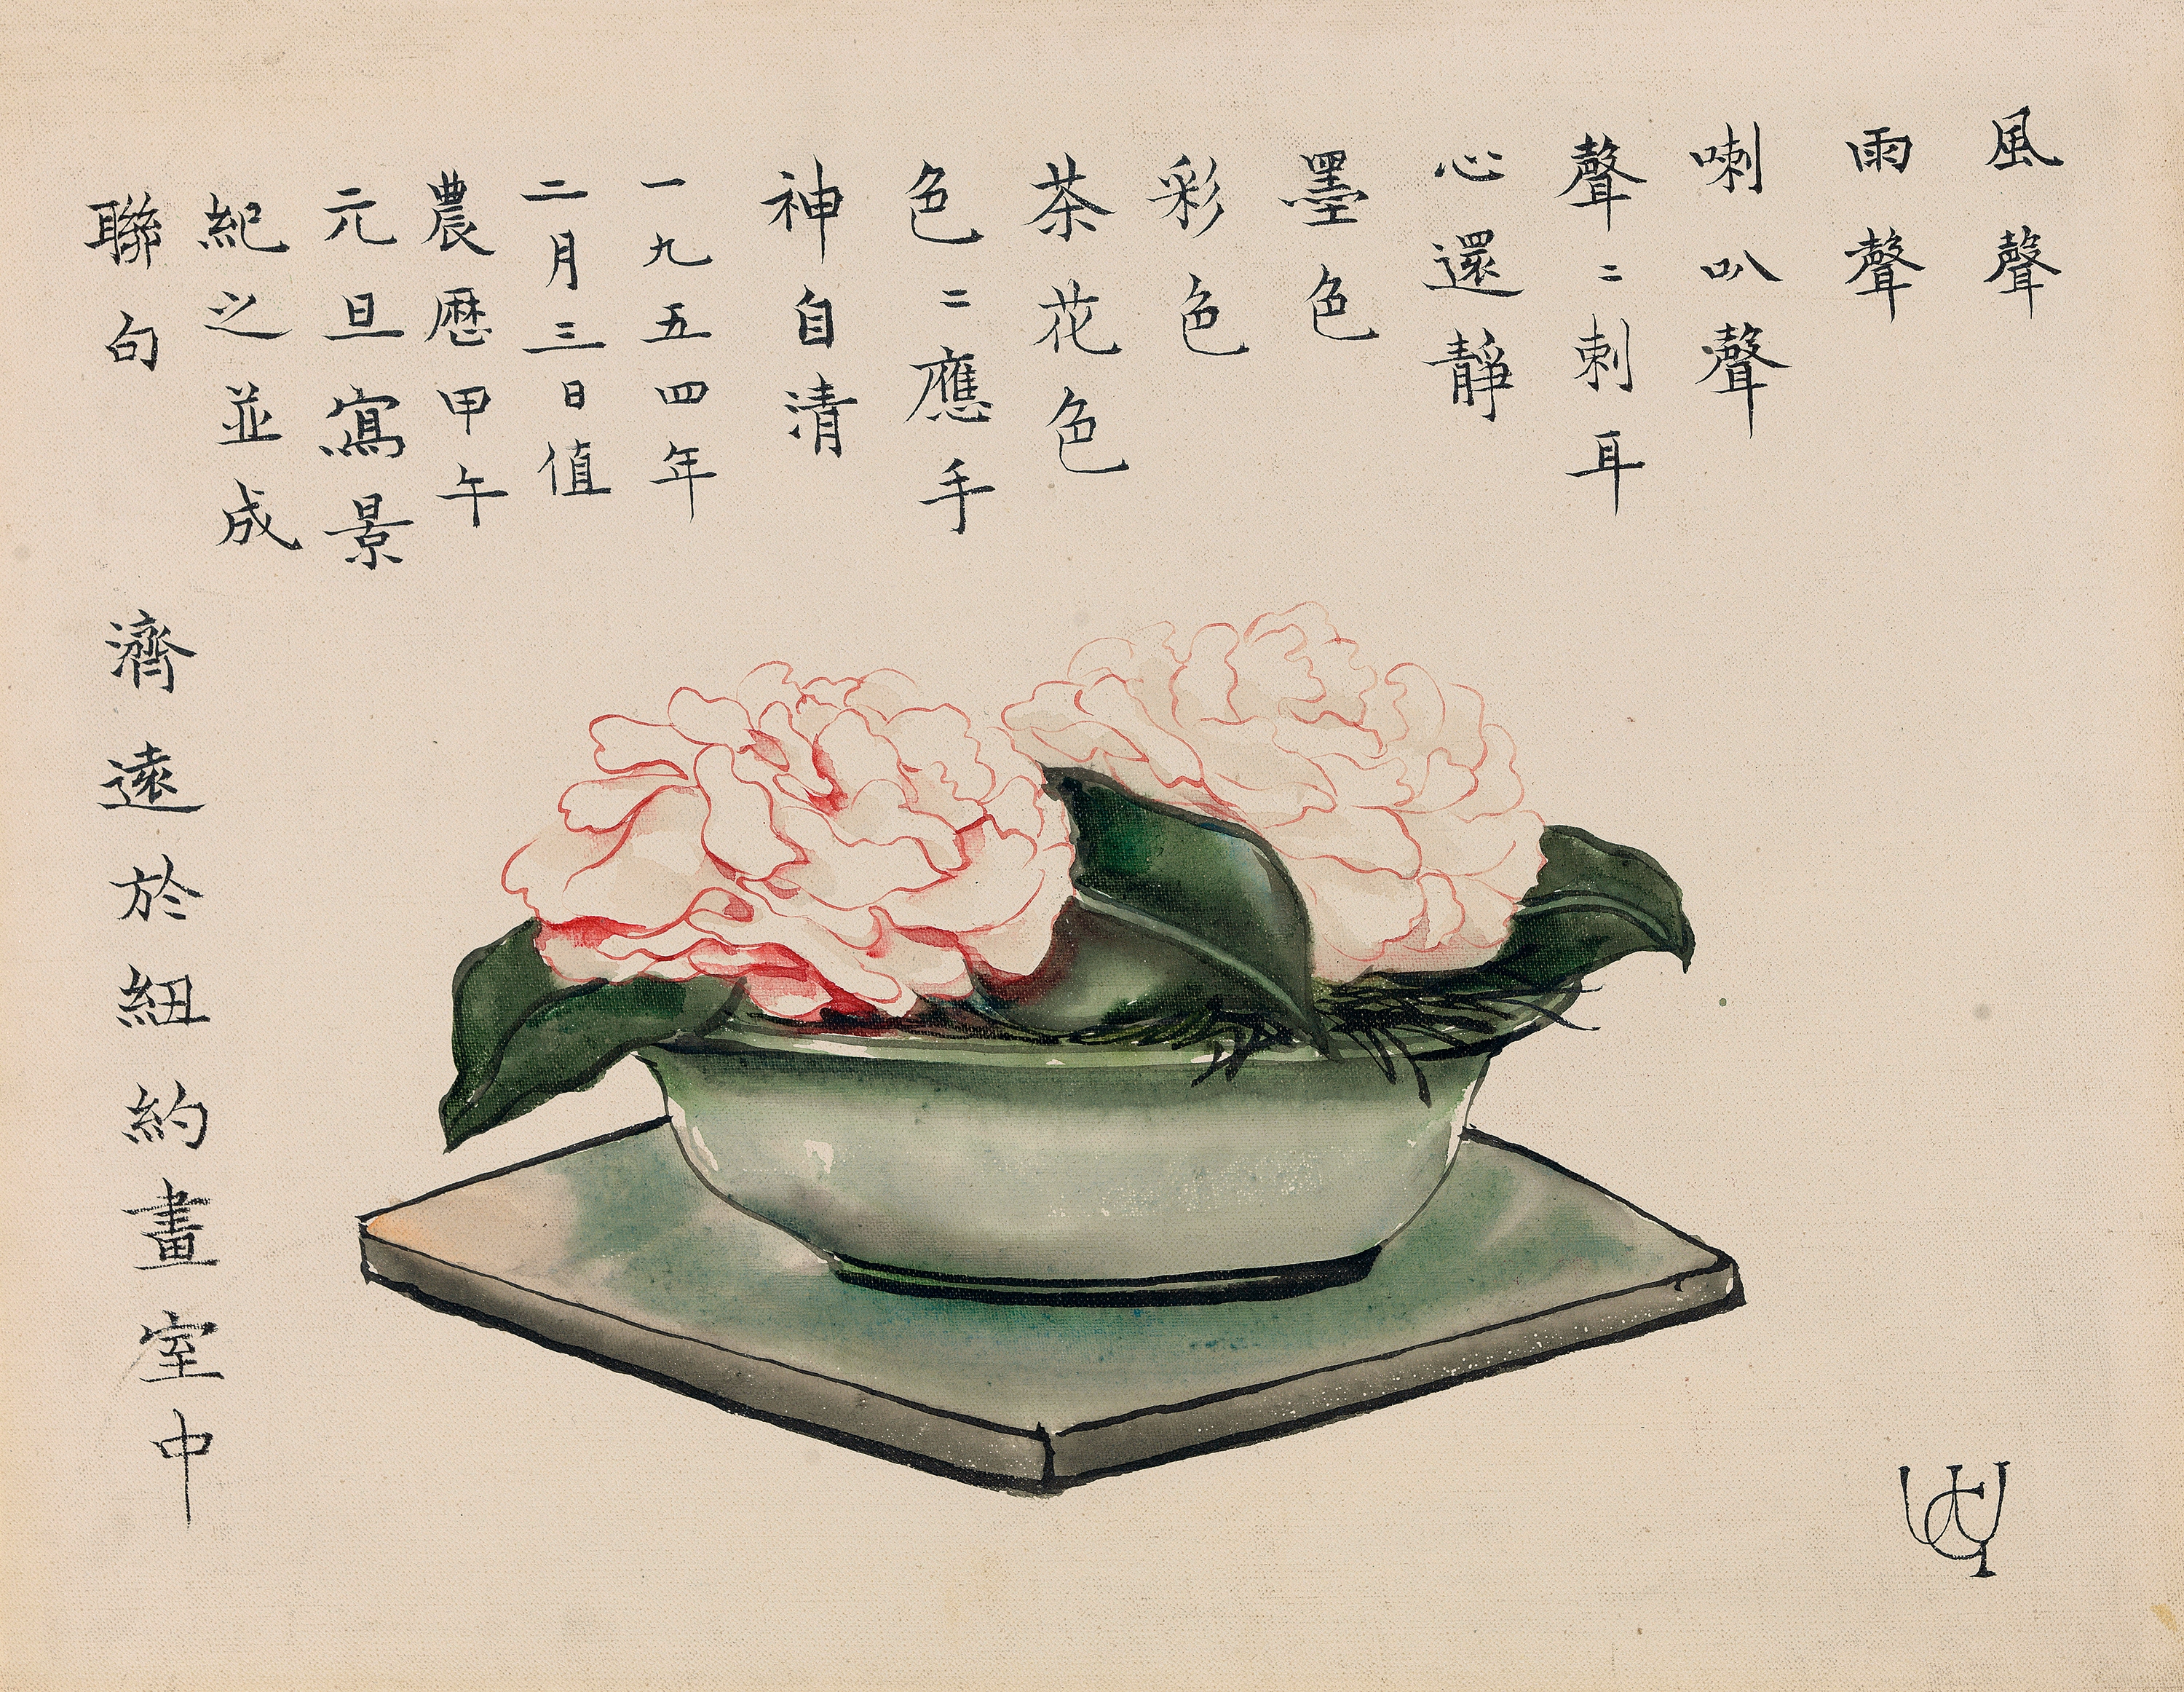 風聲
雨聲
喇叭聲
聲〻刺耳
心還靜
墨色
彩色
茶花色
色〻應手
神自清
一九五四年
二月三日值
農歷甲午
元旦寫景
紀之並成
聯句
濟遠於紐約畫室中